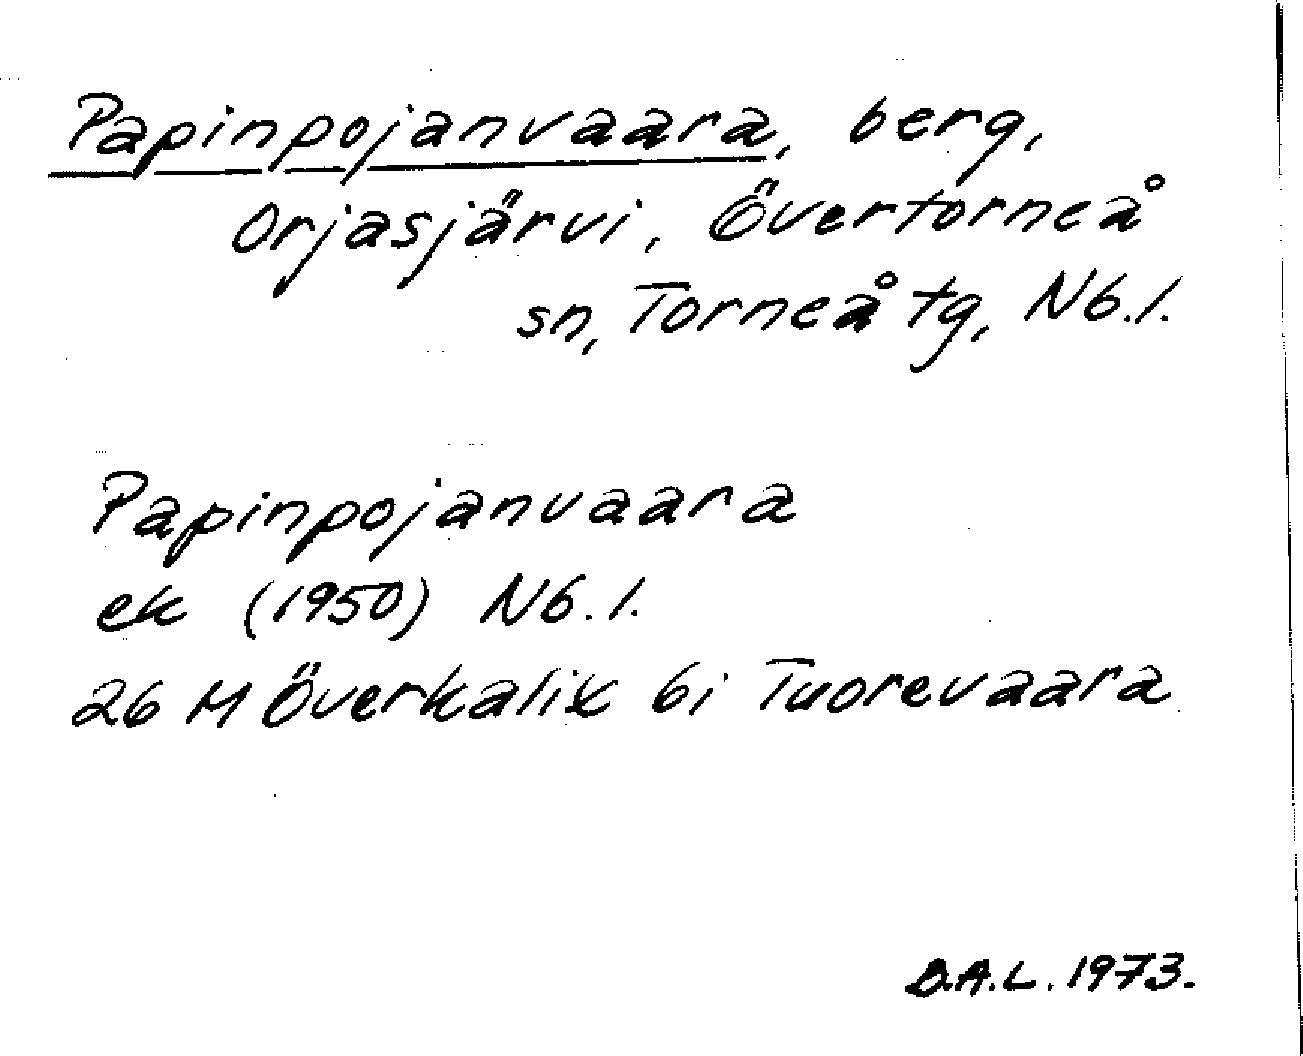 Papinpojanvaara, berg,
Orjasjärvi, Övertorneå
sn, Torneå tg, Nb.l.
Papinpojanvaara
ek (1950) Nb.l.
26 M Överkalix bi Tuorevaara
B.A.L. 1973.